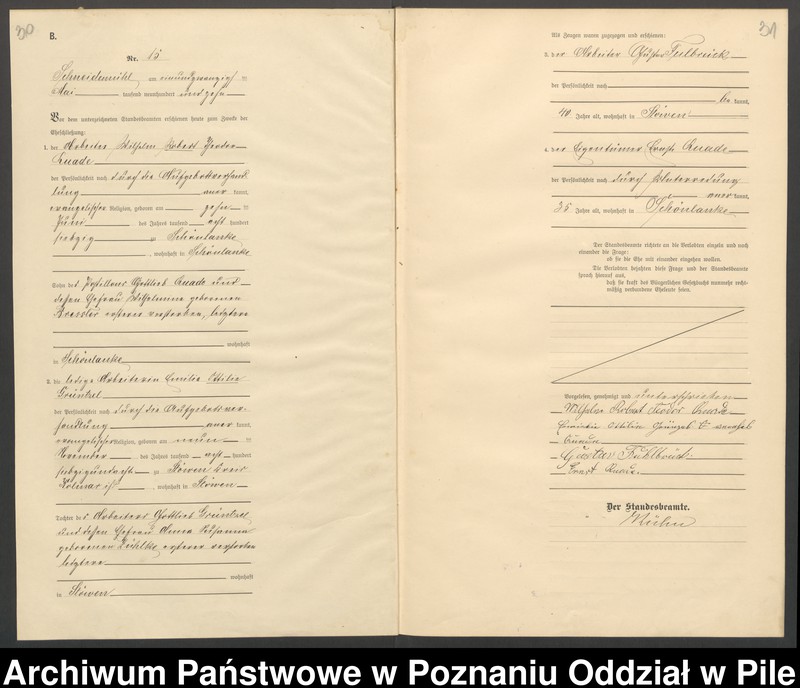 30
B.
Nr. 15
Schneidemühl am einundzwanzigsten
Mai tausend neunhundert und zehn
Vor dem unterzeichneten Standesbeamten erschienen heute zum Zwecke der
Eheschließung:
1. der Arbeiter Wilhelm Robert
Quade
der Persönlichkeit nach durch die Aufgebotsverhand
lung aner kannt,
evangelischer Religion, geboren am zehn ten
Juni des Jahres tausend acht hundert
siebzig zu Schönlanke
, wohnhaft in Schönlanke
Sohn des Gottlieb Quade und
dessen Ehefrau Wilhelmine geborenen
ersterer verstorben, letztere
wohnhaft
in Schönlanke
2. die ledige Arbeiterin Emilie Ottilie
Grünzel
der Persönlichkeit nach durch die Aufgebotsver-
handlung aner kannt,
evangelischer Religion, geboren am neun ten
November des Jahres tausend acht hundert
siebzigundacht zu Stöwen Kreis
Kolmar i/P , wohnhaft in Stöwen
Tochter des Arbeiters Gottlieb Grünzel
und dessen Ehefrau Anna Susanna
geborenen ersterer verstorben
letztere
wohnhaft
in Stöwen
31
Als Zeugen waren zugezogen und erschienen:
3. der Arbeiter Gustav Feilbrück
der Persönlichkeit nach
be kannt,
40 Jahre alt, wohnhaft in Stöwen
4. der Eigentümer Ernst Quade
der Persönlichkeit nach durch Unterredung
aner kannt,
35 Jahre alt, wohnhaft in Schönlanke
Der Standesbeamte richtete an die Verlobten einzeln und nach
einander die Frage:
ob sie die Ehe mit einander eingehen wollen.
Die Verlobten bejahten diese Frage und der Standesbeamte
sprach hierauf aus,
daß sie kraft des Bürgerlichen Gesetzbuchs nunmehr recht-
mäßig verbundene Eheleute seien.
Vorgelesen, genehmigt und unterschrieben
Wilhelm Robert Quade
Ottilie Quade
Gustav
Ernst Quade.
Der Standesbeamte.
Archiwum Państwowe w Poznaniu Oddział w Pile